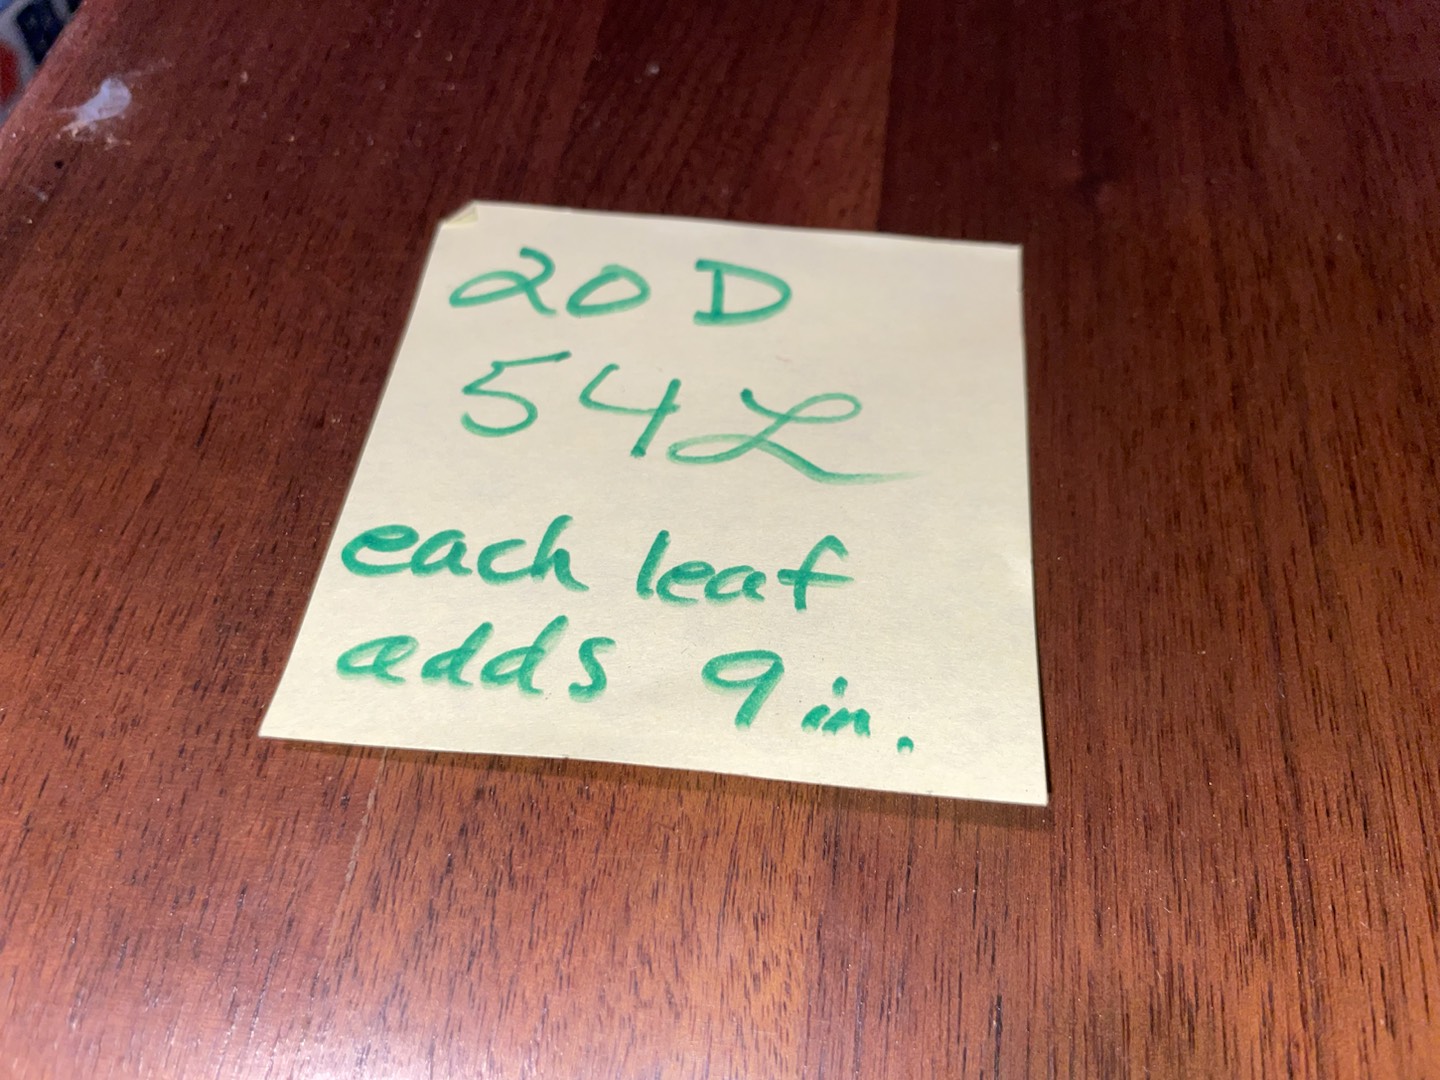 20 D
54 L
each leaf
adds 9 in.